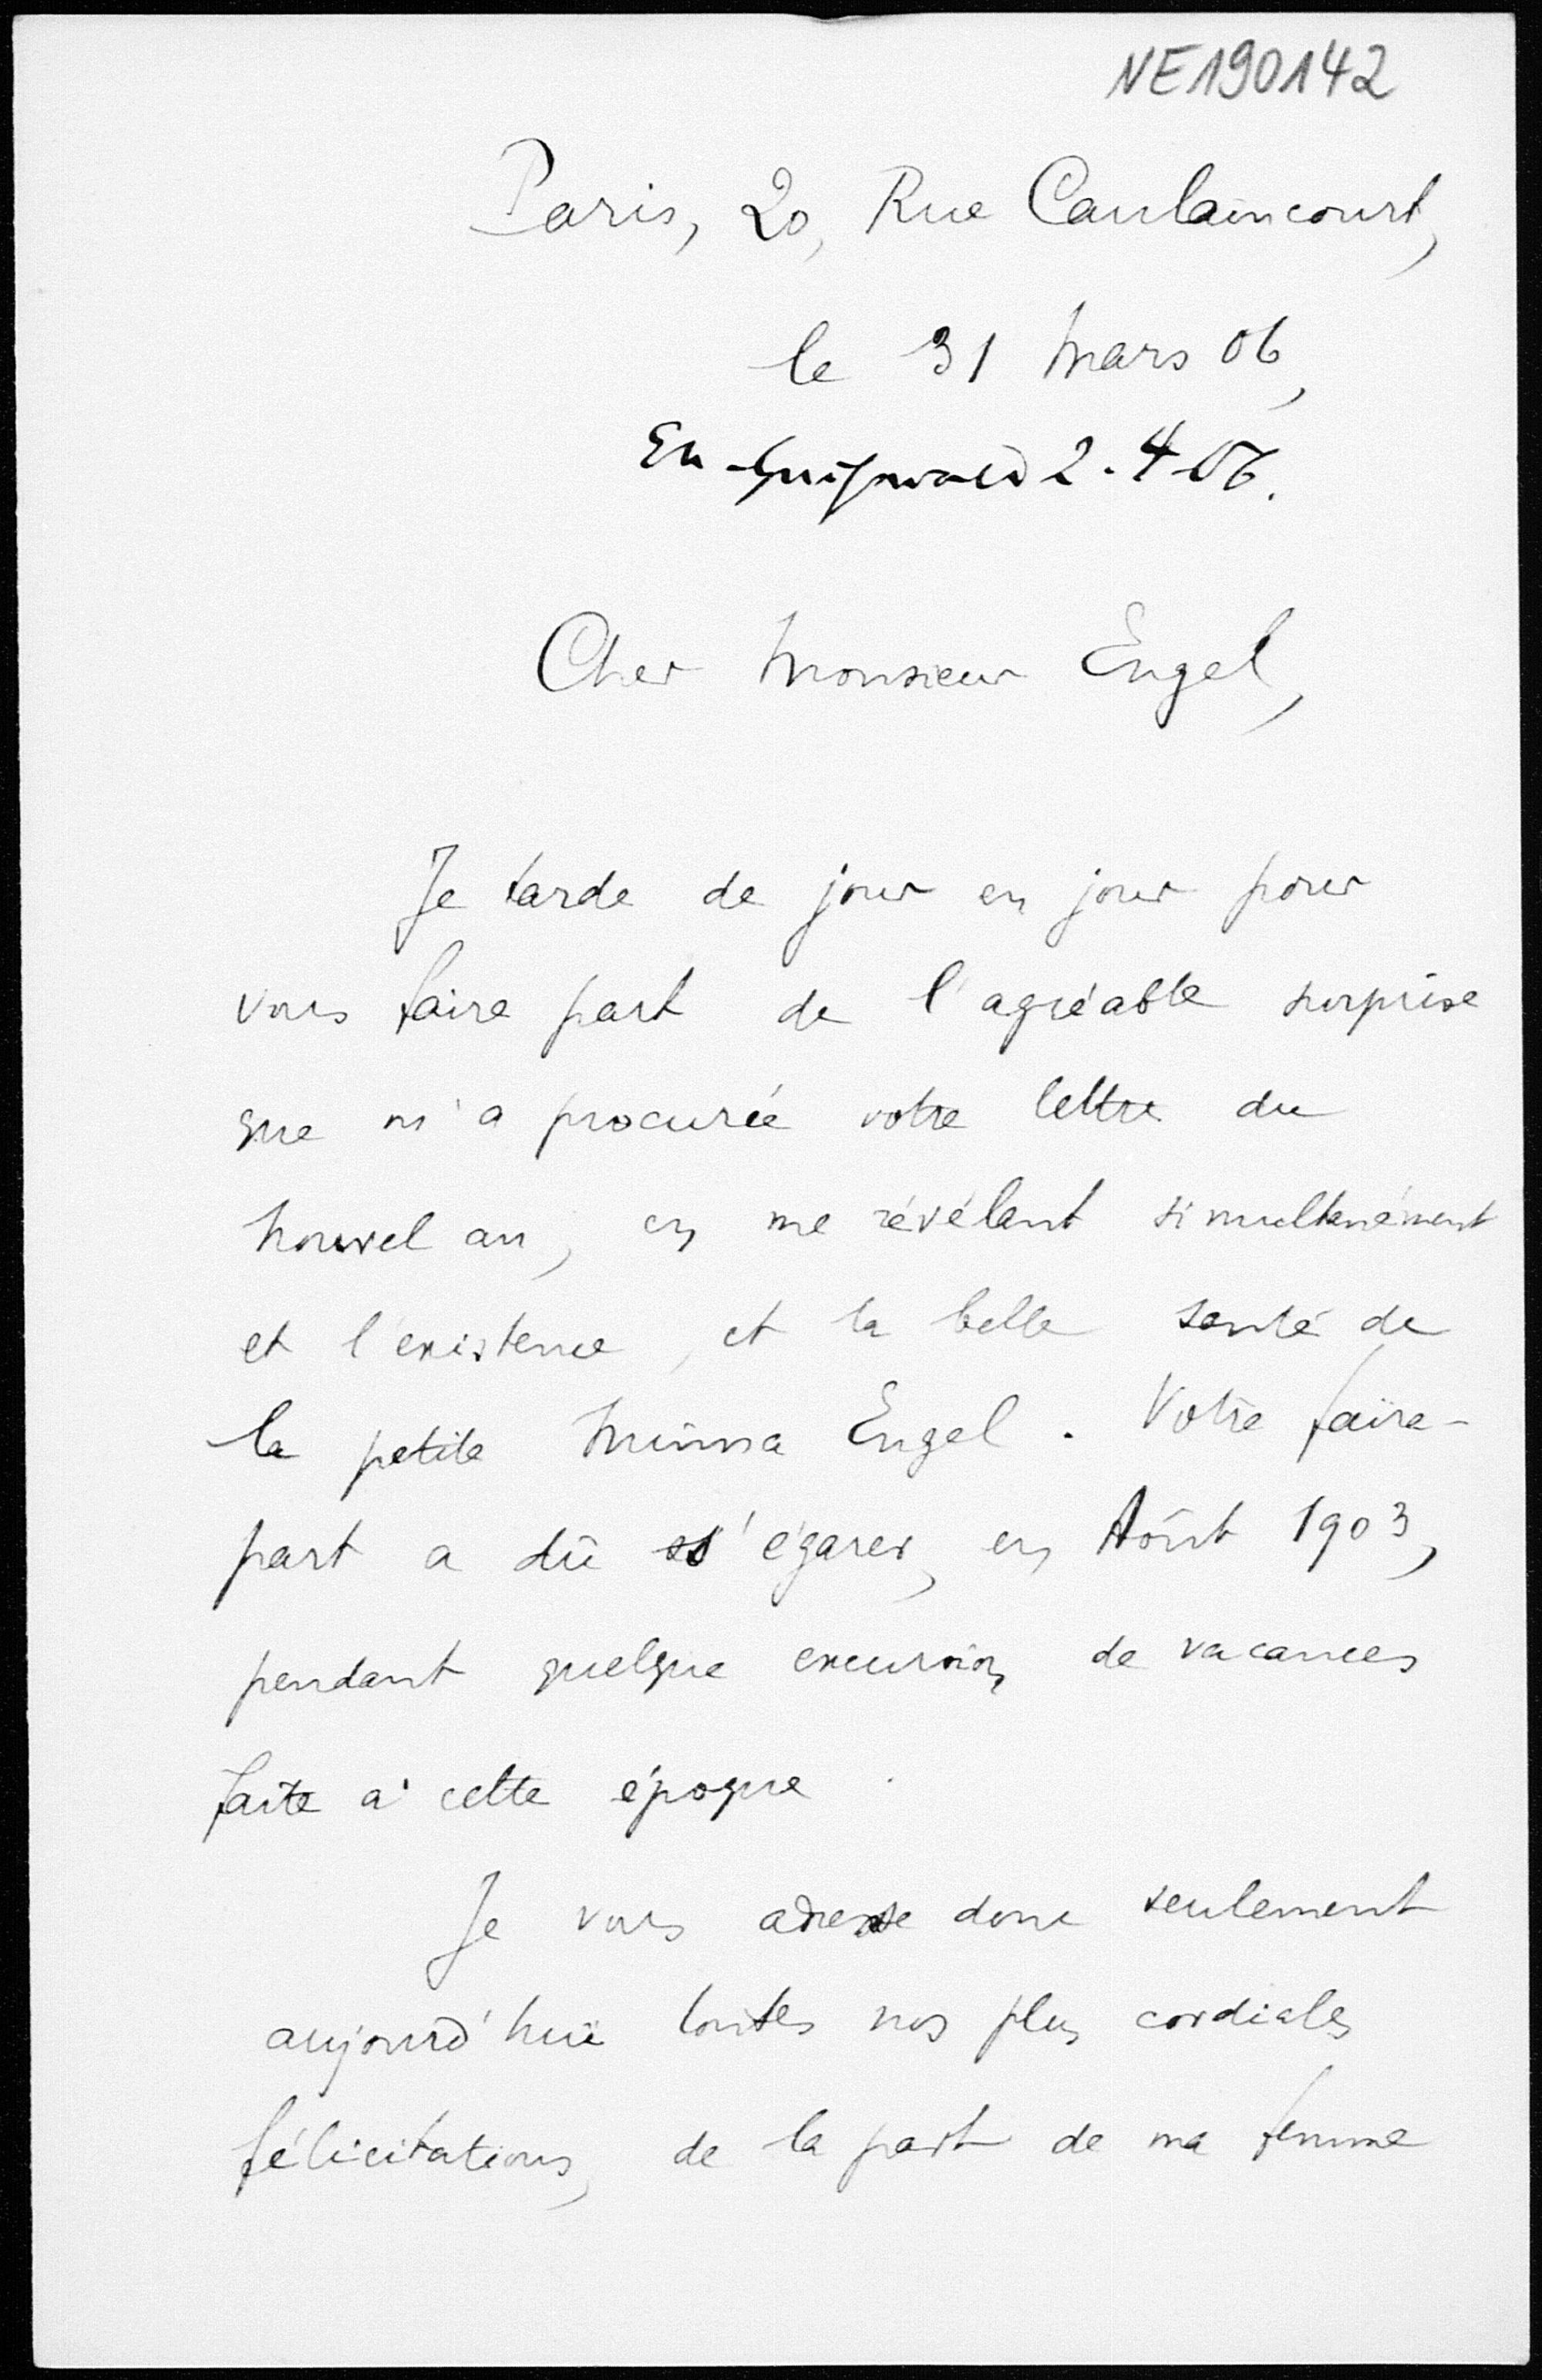 NE190142
Paris, 20, Rue Caulaincourt,
le 31 Mars 06,
En Greifswald 2.4.06.
Cher Monsieur Engel,
Je tarde de jour en jour pour
vous faire part de l'agréable surprise
que m'a procurée votre lettre du
Nouvel an, en me révélant simultanément
et l'existence, et la belle santé de
la petite Minna Engel. Votre faire-
part a dû s'égarer, en Août 1903,
pendant quelque excursion de vacances
faite à cette époque.
Je vous adresse donc seulement
aujourd'hui toutes nos plus cordiales
félicitations, de la part de ma femme